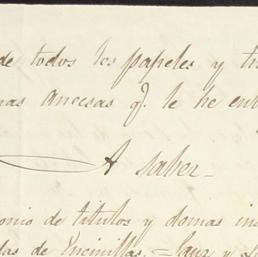 de todos los papeles y
mas anecsas q. le he
A saber -
onio de titulos y demas
das de Encinillas, =